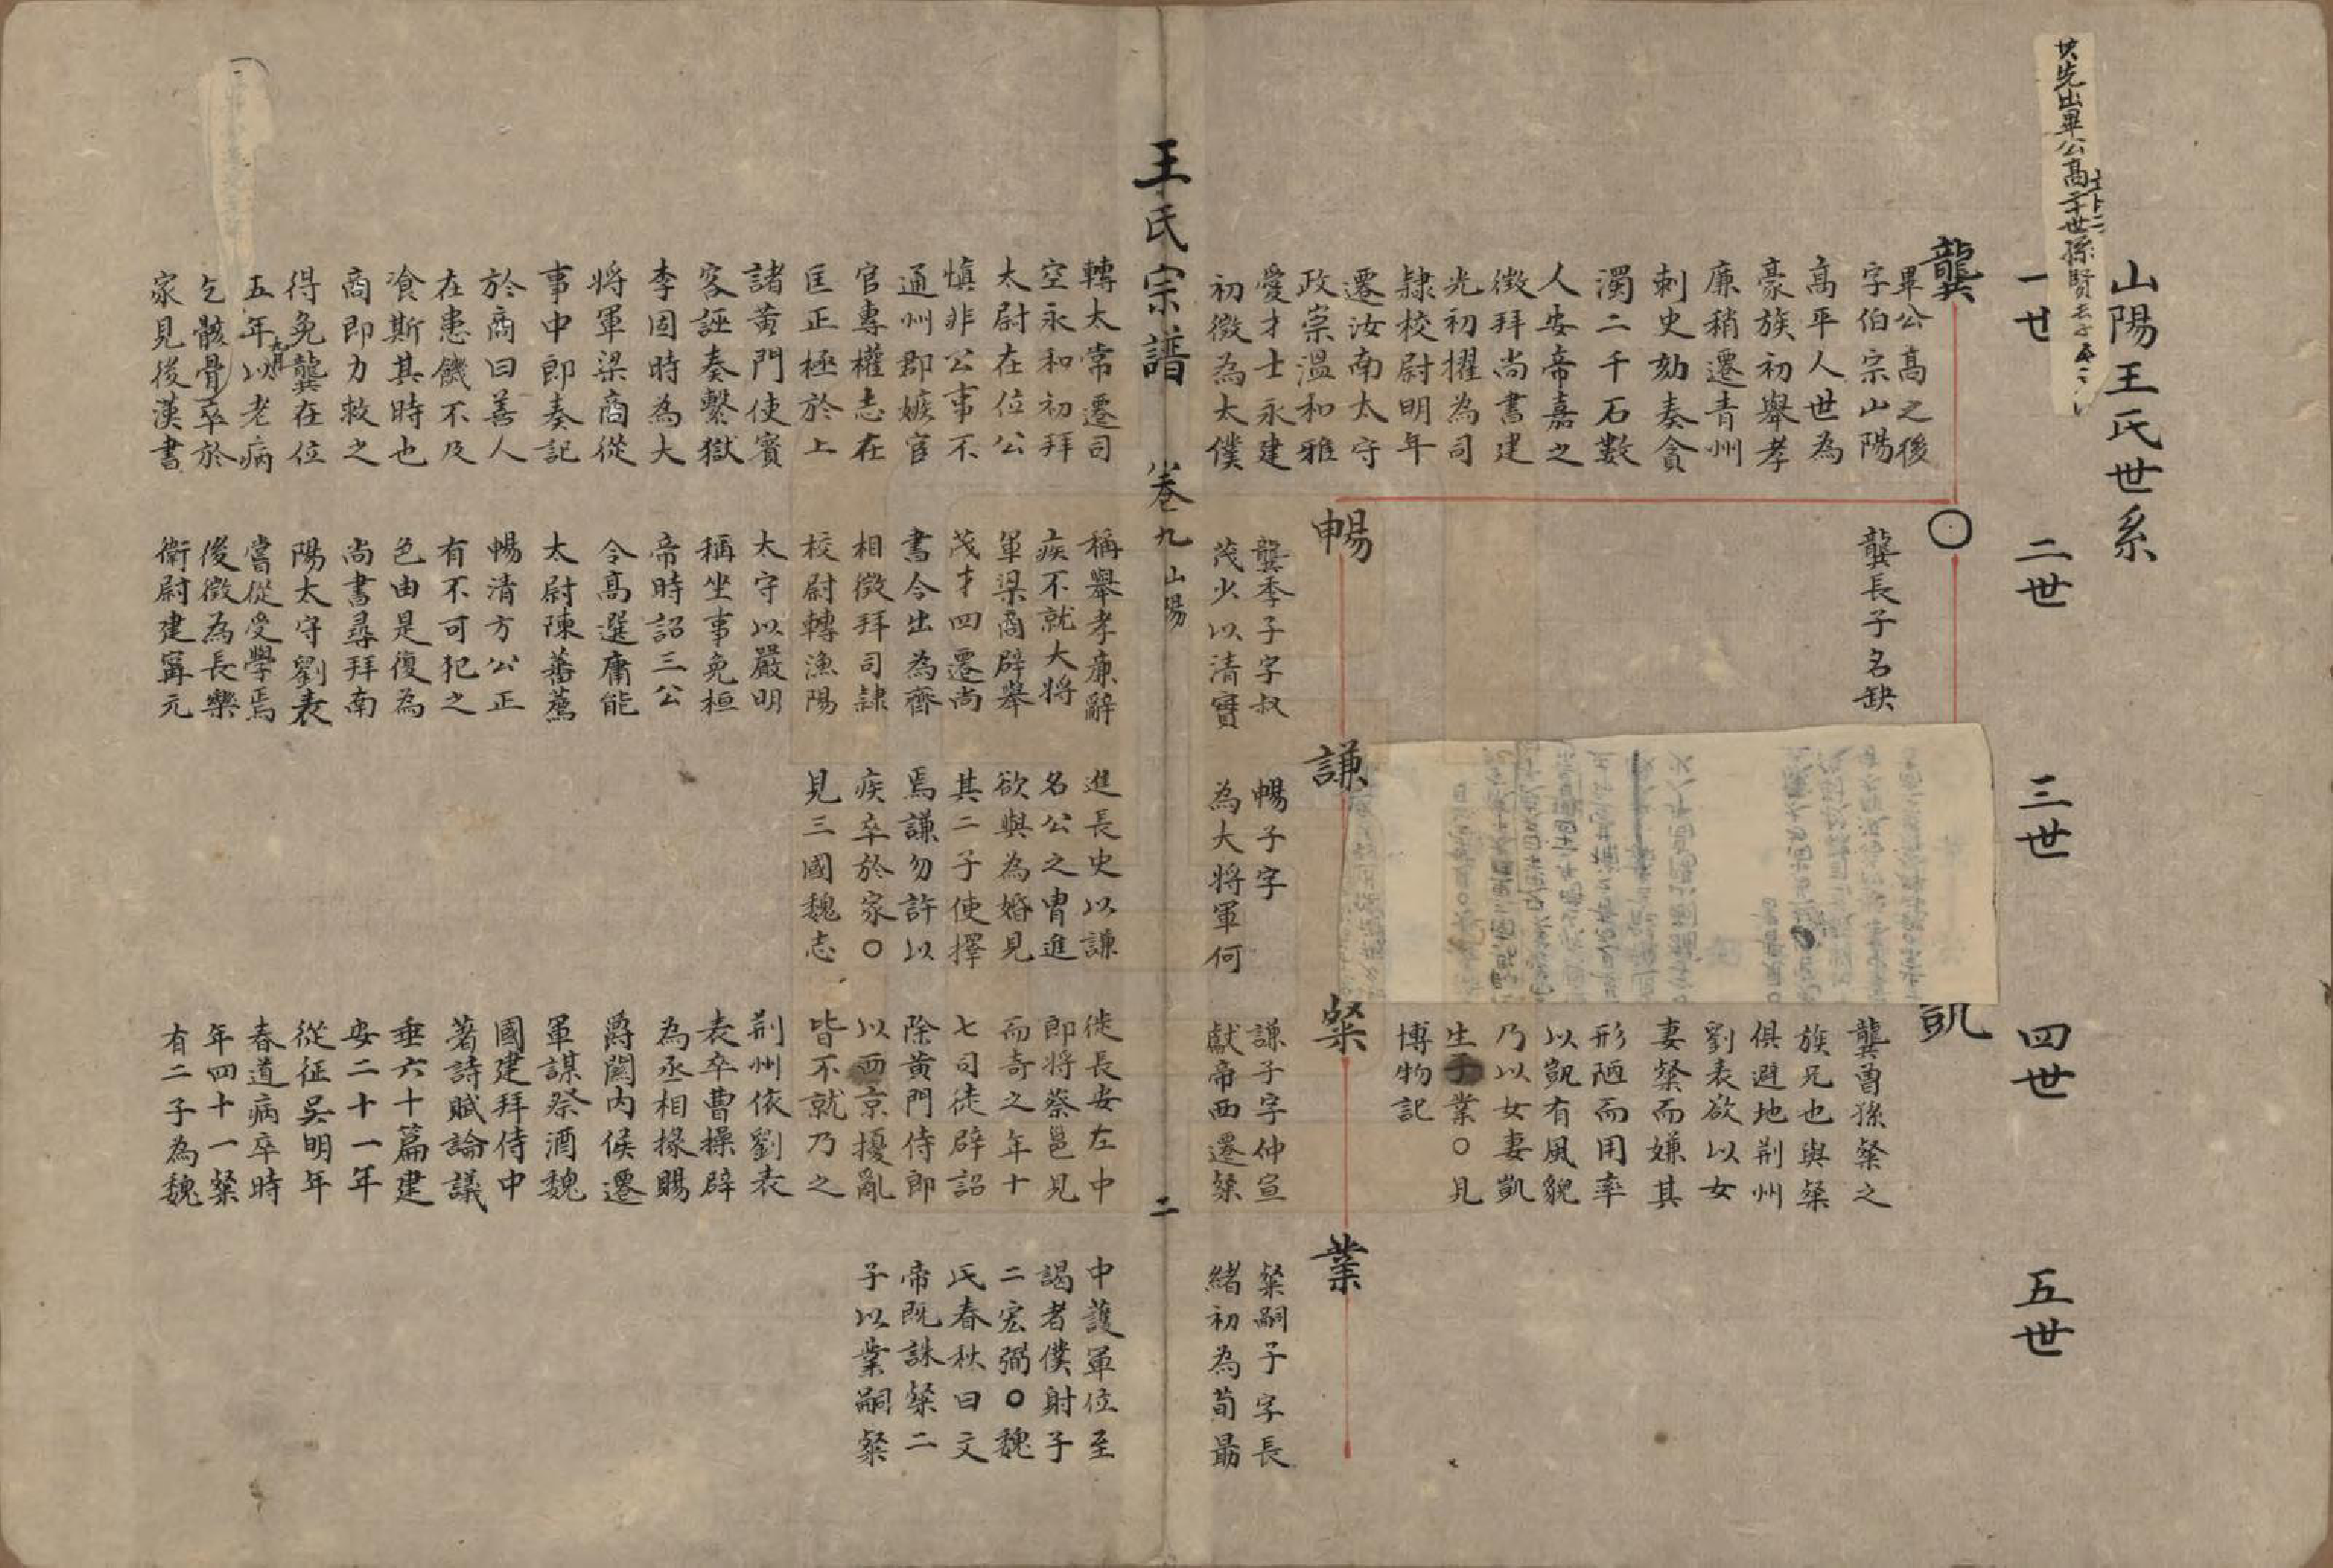 山陽王氏世系
一世
二世
三世
四世
五世
其先出畢公高
世孫賢
龔
畢公高之後
字伯宗山陽
高平人世為
豪族初舉孝
廉稍遷青州
刺史劾奏貪
濁二千石數
人安帝嘉之
徵拜尚書建
光初擢為司
隸校尉明年
遷汝南太守
政崇溫和雅
愛才士永建
初徵為太僕
轉太常遷司
空永和初拜
太尉在位公
慎非公事不
通州郡嫉宦
官專權志在
匡正極於上
諸黃門使賓
客誣奏繫獄
李固時為大
將軍梁商從
事中郎奏記
於商曰善人
在患饑不及
飡斯其時也
商即力救之
得免龔在位
五年以老病
乞骸骨卒於
家見後漢書
○
龔長子名缺
暢
龔季子字叔
茂少以清實
稱舉孝廉辭
疾不就大將
軍梁商辟舉
茂才四遷尚
書令出為齊
相徵拜司隸
校尉轉漁陽
太守以嚴明
稱坐事免桓
帝時詔三公
令高選庸能
太尉陳蕃薦
暢清方公正
有不可犯之
色由是復為
尚書尋拜南
陽太守劉表
嘗從受學焉
後徵為長樂
衛尉建寧元
謙
暢子字
為大將軍何
進長史以謙
名公之冑進
欲與為婚見
其二子使擇
焉謙勿許以
疾卒於家○
見三國魏志
凱
龔曾孫粲之
族兄也與粲
俱避地荆州
劉表欲以女
妻粲而嫌其
形陋而用率
以凱有風貌
乃以女妻凱
生子業○見
博物記
粲
謙子字仲宣
獻帝西遷粲
徙長安左中
郎將蔡邕見
而奇之年十
七司徒辟詔
除黃門侍郎
以西京擾亂
皆不就乃之
荆州依劉表
表卒曹操辟
為丞相掾賜
爵關内侯遷
軍謀祭酒魏
國建拜侍中
著詩賦論議
垂六十篇建
安二十一年
從征吳明年
春道病卒時
年四十一粲
有二子為魏
業
粲嗣子字長
緒初為荀勗
中護軍位至
謁者僕射子
二宏弼○魏
氏春秋曰文
帝既誅粲二
子以業嗣粲
王氏宗譜 卷九 山陽 二